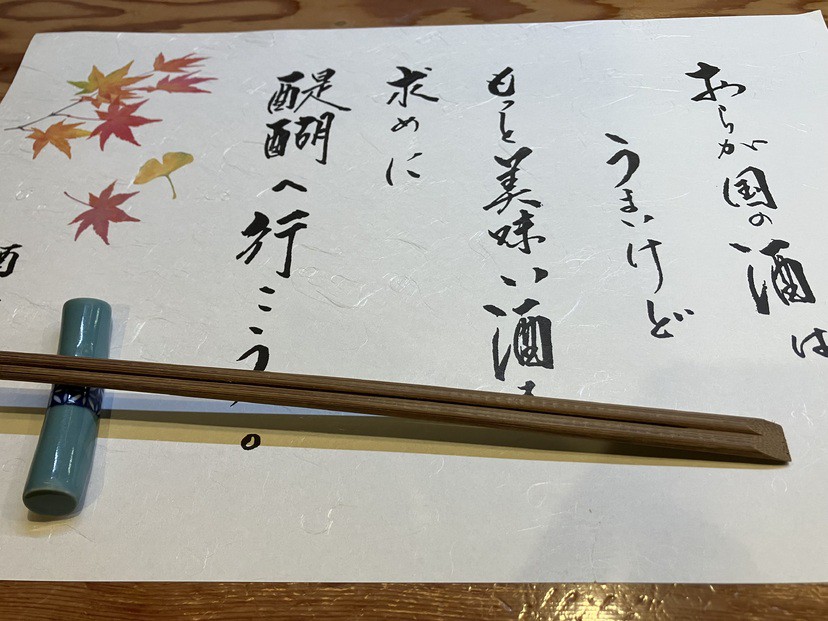 おらが国の酒は
うまいけど
もっと美味い酒
求めに
醍醐へ行こう。